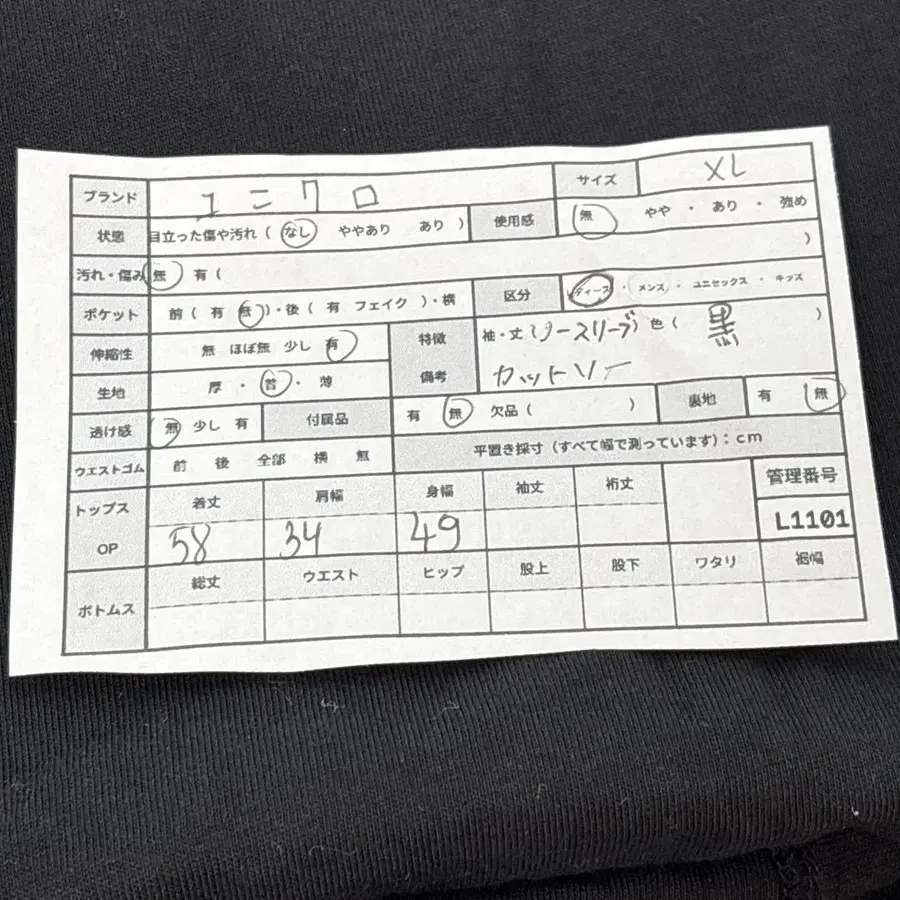 ブランド ユニクロ サイズ XL
状態 目立った傷や汚れ ( なし ややあり あり ) 使用感 無 やや ・ あり ・ 強め
汚れ・傷み 無 有 ( )
ポケット 前 ( 有 無 )・後 ( 有 フェイク )・横 区分 ディース ・ メンズ ・ ユニセックス ・ キッズ
伸縮性 無 ほぼ無 少し 有 特徴 袖・丈 (ノースリーブ) 色 ( 黒 )
生地 厚 ・ 普 ・ 薄 備考 カットソー
透け感 無 少し 有 付属品 有 無 欠品 ( ) 裏地 有 無
ウエストゴム 前 後 全部 横 無 平置き採寸 (すべて幅で測っています) : cm
トップス 着丈 肩幅 身幅 袖丈 裄丈 管理番号
OP 58 34 49 L1101
ボトムス 総丈 ウエスト ヒップ 股上 股下 ワタリ 裾幅